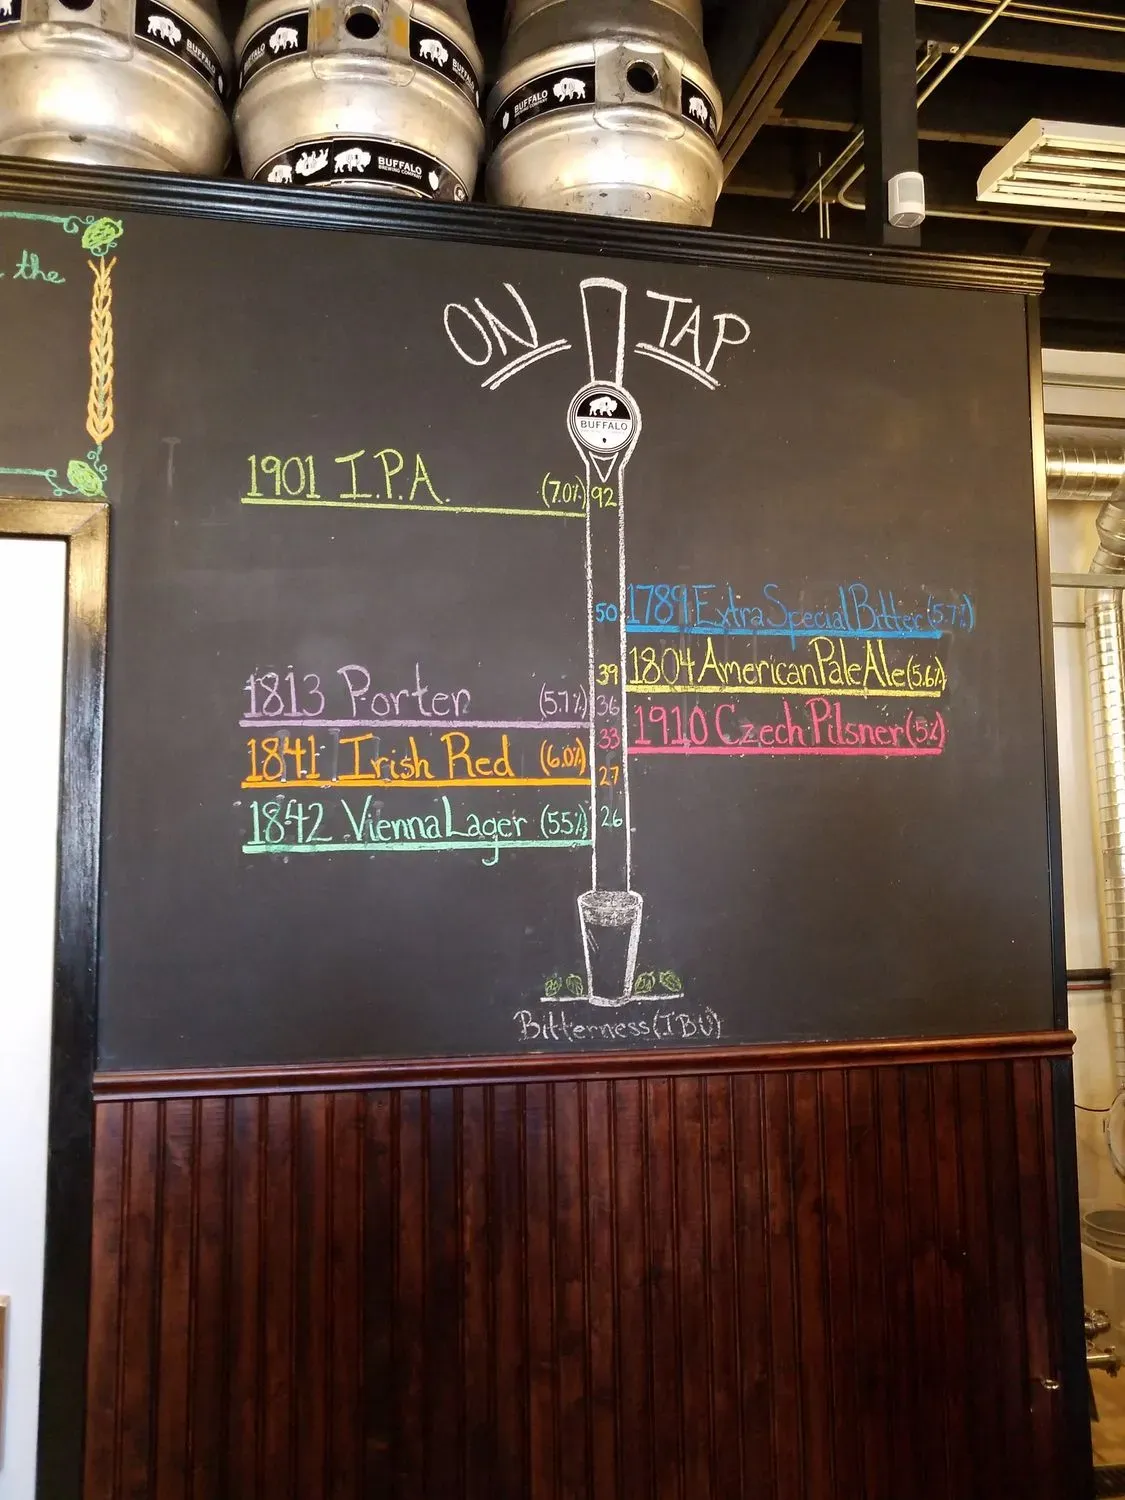 BUFFALO
BUFFALO
BUFFALO
BUFFALO
BREWING COMPANY
BUFFALO
BREWING COMPANY
the
ON TAP
BUFFALO
1901 I.P.A. (7.0%) 92
50 1789 Extra Special Bitter (5.7%)
39 1804 American Pale Ale (5.6%)
1813 Porter (5.7%) 36
33 1910 Czech Pilsner (5%)
1841 Irish Red (6.0%) 27
1842 Vienna Lager (5.5%) 26
Bitterness (IBU)